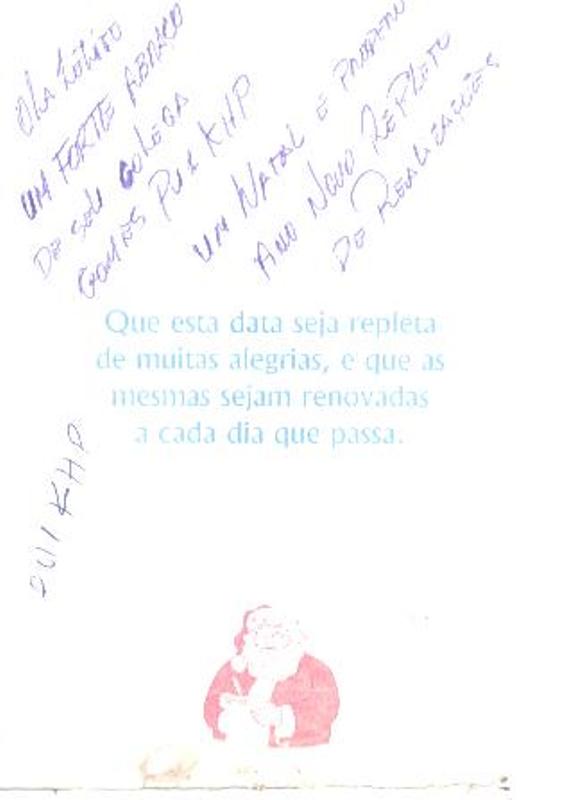 Ola
UM FORTE ABRAÇO
DE SEU COLEGA
GOMES PU1KHP
UM NATAL E
ANO NOVO REPLETO
DE REALIZAÇÕES
Que esta data seja repleta
de muitas alegrias, e que as
mesmas sejam renovadas
a cada dia que passa.
PU1KHP